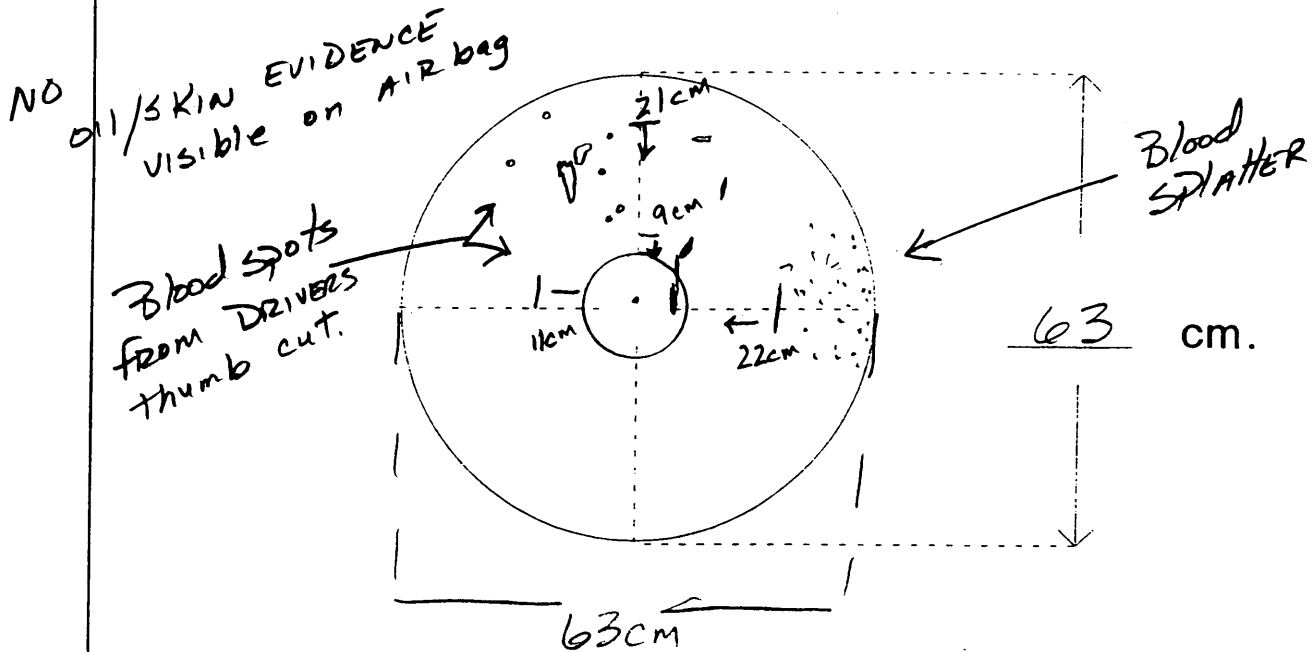 NO
oil/SKIN EVIDENCE
visible on AIR bag
21cm
Blood
SPlATTER
9cm
Blood spots
from DRIVERS
thumb cut.
11cm
22cm
63 cm.
63cm